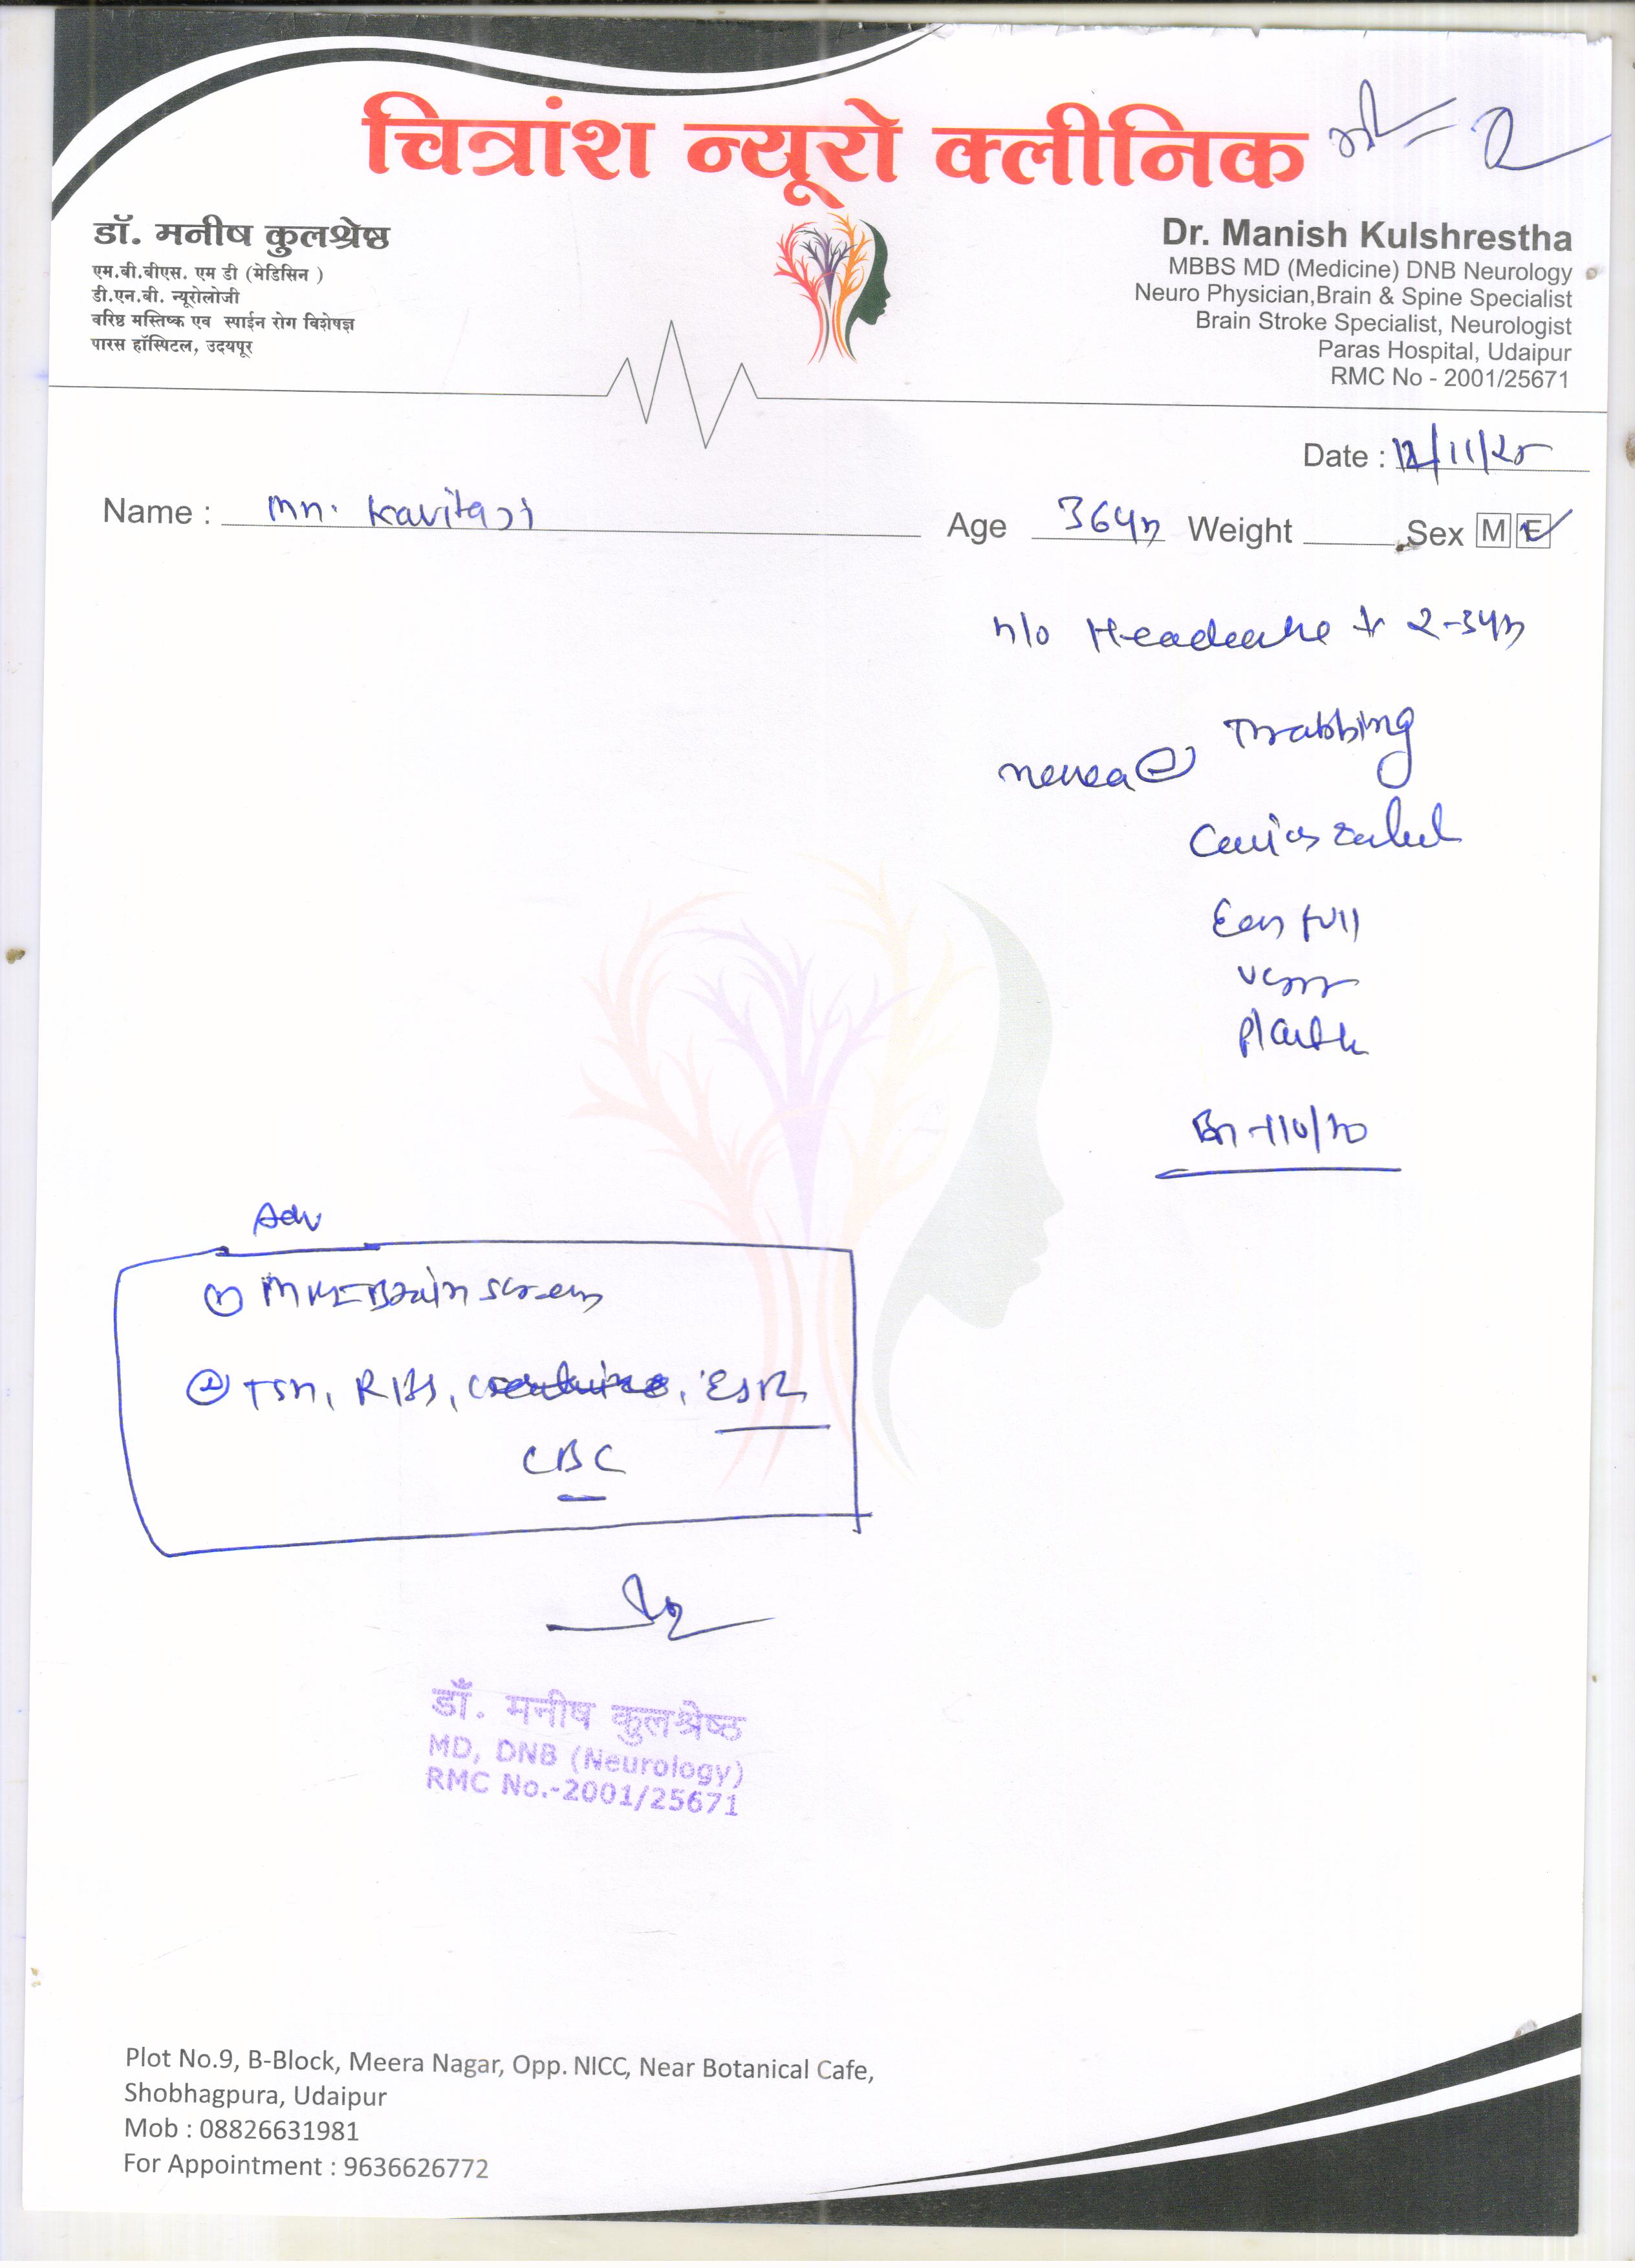 चित्रांश न्यूरो क्लीनिक
डॉ. मनीष कुलश्रेष्ठ
एम.बी.बीएस. एम डी (मेडिसिन )
डी.एन.बी. न्यूरोलोजी
वरिष्ठ मस्तिष्क एव स्पाईन रोग विशेषज्ञ
पारस हॉस्पिटल, उदयपूर
Dr. Manish Kulshrestha
MBBS MD (Medicine) DNB Neurology
Neuro Physician,Brain & Spine Specialist
Brain Stroke Specialist, Neurologist
Paras Hospital, Udaipur
RMC No - 2001/25671
Date : 12/11/25
Name : Kavita ji
Age 36 yrs Weight Sex M F
H/o Headache 2-3 yrs
Throbbing
nausea
full
BP-110/70
Adv
① MRI-Brain screen
② TSH, RBS, ESR
CBC
डॉ. मनीष कुलश्रेष्ठ
MD, DNB (Neurology)
RMC No.-2001/25671
Plot No.9, B-Block, Meera Nagar, Opp. NICC, Near Botanical Cafe,
Shobhagpura, Udaipur
Mob : 08826631981
For Appointment : 9636626772